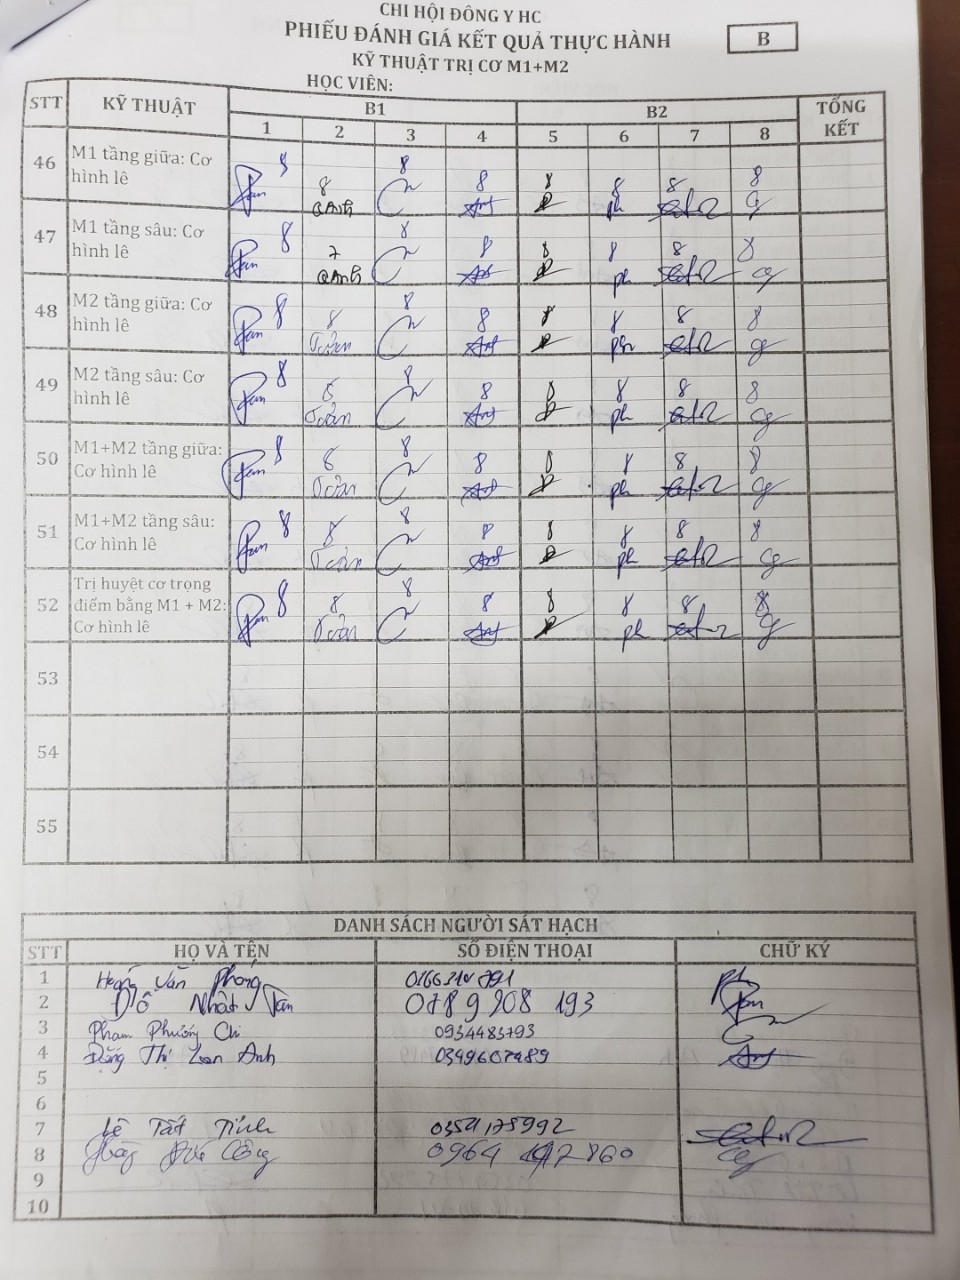 CHI HỘI ĐÔNG Y HC
PHIẾU ĐÁNH GIÁ KẾT QUẢ THỰC HÀNH
B
KỸ THUẬT TRỊ CƠ M1+M2
HỌC VIÊN:
STT KỸ THUẬT B1 B2 TỔNG KẾT
1 2 3 4 5 6 7 8
46 M1 tầng giữa: Cơ hình lê 8 8 8 8 8 8 8 8
QAnh ph
47 M1 tầng sâu: Cơ hình lê 8 7 8 8 8 8 8 8
QAnh ph
48 M2 tầng giữa: Cơ hình lê 8 8 8 8 8 8 8 8
Toản ph
49 M2 tầng sâu: Cơ hình lê 8 8 8 8 8 8 8 8
Toản ph
50 M1+M2 tầng giữa: Cơ hình lê 8 8 8 8 8 8 8 8
Toản ph
51 M1+M2 tầng sâu: Cơ hình lê 8 8 8 8 8 8 8 8
Toản ph
52 Trị huyệt cơ trọng điểm bằng M1 + M2: Cơ hình lê 8 8 8 8 8 8 8 8
Toản ph
53
54
55
DANH SÁCH NGƯỜI SÁT HẠCH
STT HỌ VÀ TÊN SỐ ĐIỆN THOẠI CHỮ KÝ
1 Văn Phong
2 Đỗ Nhật Tân 0789208193
3 Phạm Phương Chi 0934483793
4 Đặng Thị Loan Anh 0349607489
5
6
7 Lê Tất Tính
8 Công
9
10